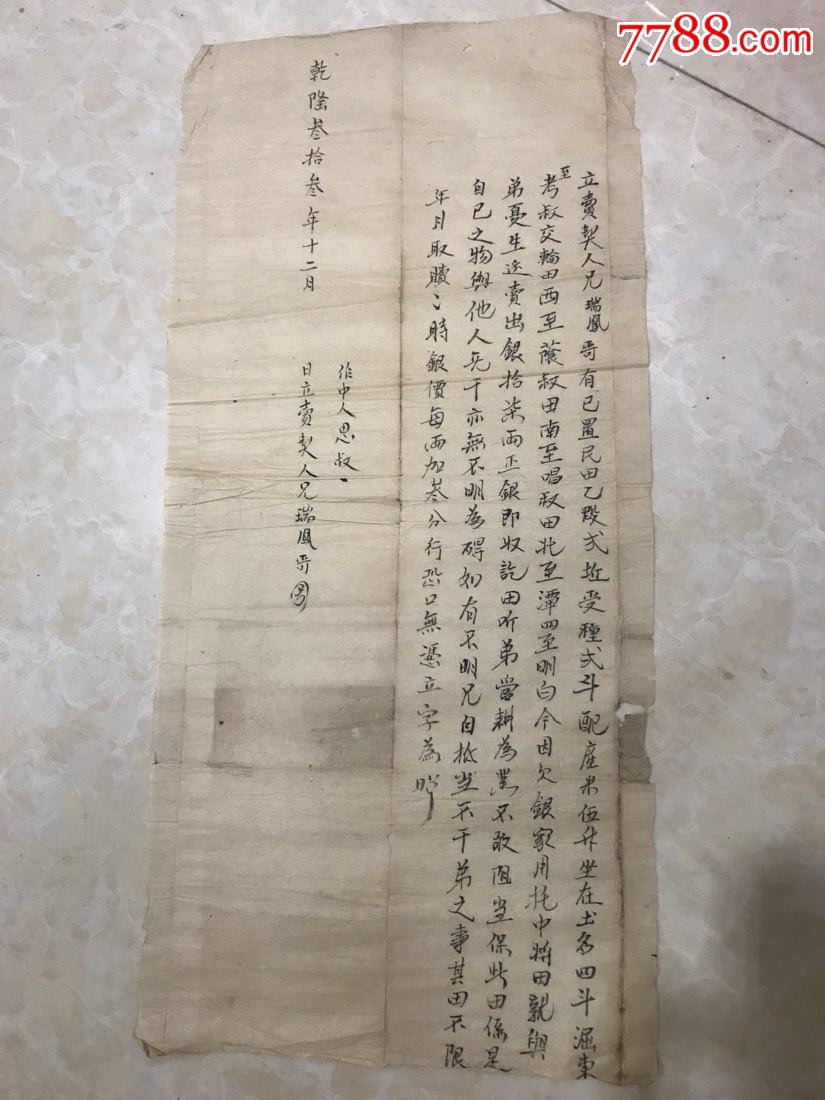 7788.com
立賣契人兄瑞鳳哥有已置民田乙段弍坵受種弍斗配産米伍升坐在土名四斗漏東
至考叔交輪田西至蔭叔田南至唱叔田北至潭四至明白今因欠銀家用托中將田就與
弟憂生边賣出銀拾柒兩正銀即收訖田听弟營耕為業不敢阻当保此田係是
自已之物與他人無干亦無不明為碍如有不明兄自抵当不干弟之事其田不限
年月取贖〻時銀價每両加叁分行恐口無憑立字為照
乾隆叁拾叁年十二月
作中人思叔
日立賣契人兄瑞鳳哥